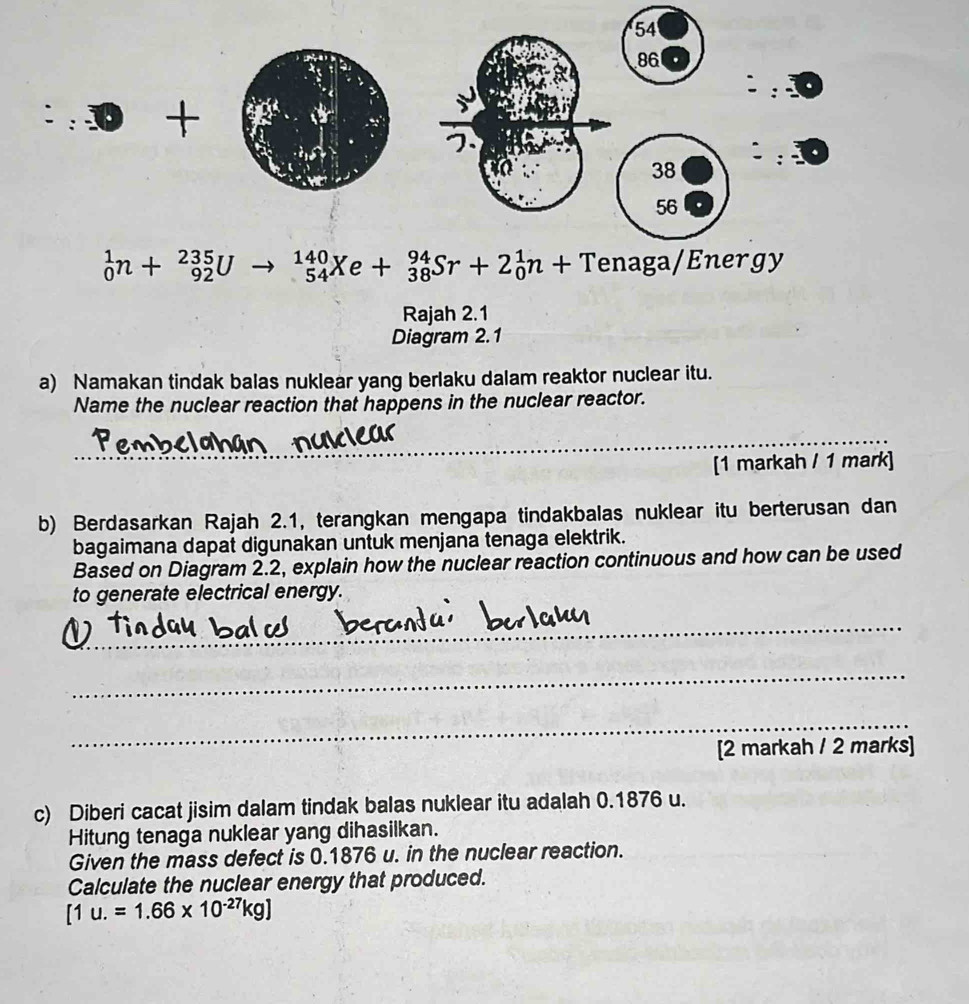 54
86
+
38
56
${}^{1}_{0}n + {}^{235}_{92}U \rightarrow {}^{140}_{54}Xe + {}^{94}_{38}Sr + 2{}^{1}_{0}n + \text{Tenaga}/Energy$
Rajah 2.1
Diagram 2.1
a) Namakan tindak balas nuklear yang berlaku dalam reaktor nuclear itu.
Name the nuclear reaction that happens in the nuclear reactor.
Pembelahan nuklear
[1 markah / 1 mark]
b) Berdasarkan Rajah 2.1, terangkan mengapa tindakbalas nuklear itu berterusan dan
bagaimana dapat digunakan untuk menjana tenaga elektrik.
Based on Diagram 2.2, explain how the nuclear reaction continuous and how can be used
to generate electrical energy.
① tindak balas berantai berlaku
[2 markah / 2 marks]
c) Diberi cacat jisim dalam tindak balas nuklear itu adalah 0.1876 u.
Hitung tenaga nuklear yang dihasilkan.
Given the mass defect is 0.1876 u. in the nuclear reaction.
Calculate the nuclear energy that produced.
[1 u. = 1.66 x 10⁻²⁷kg]